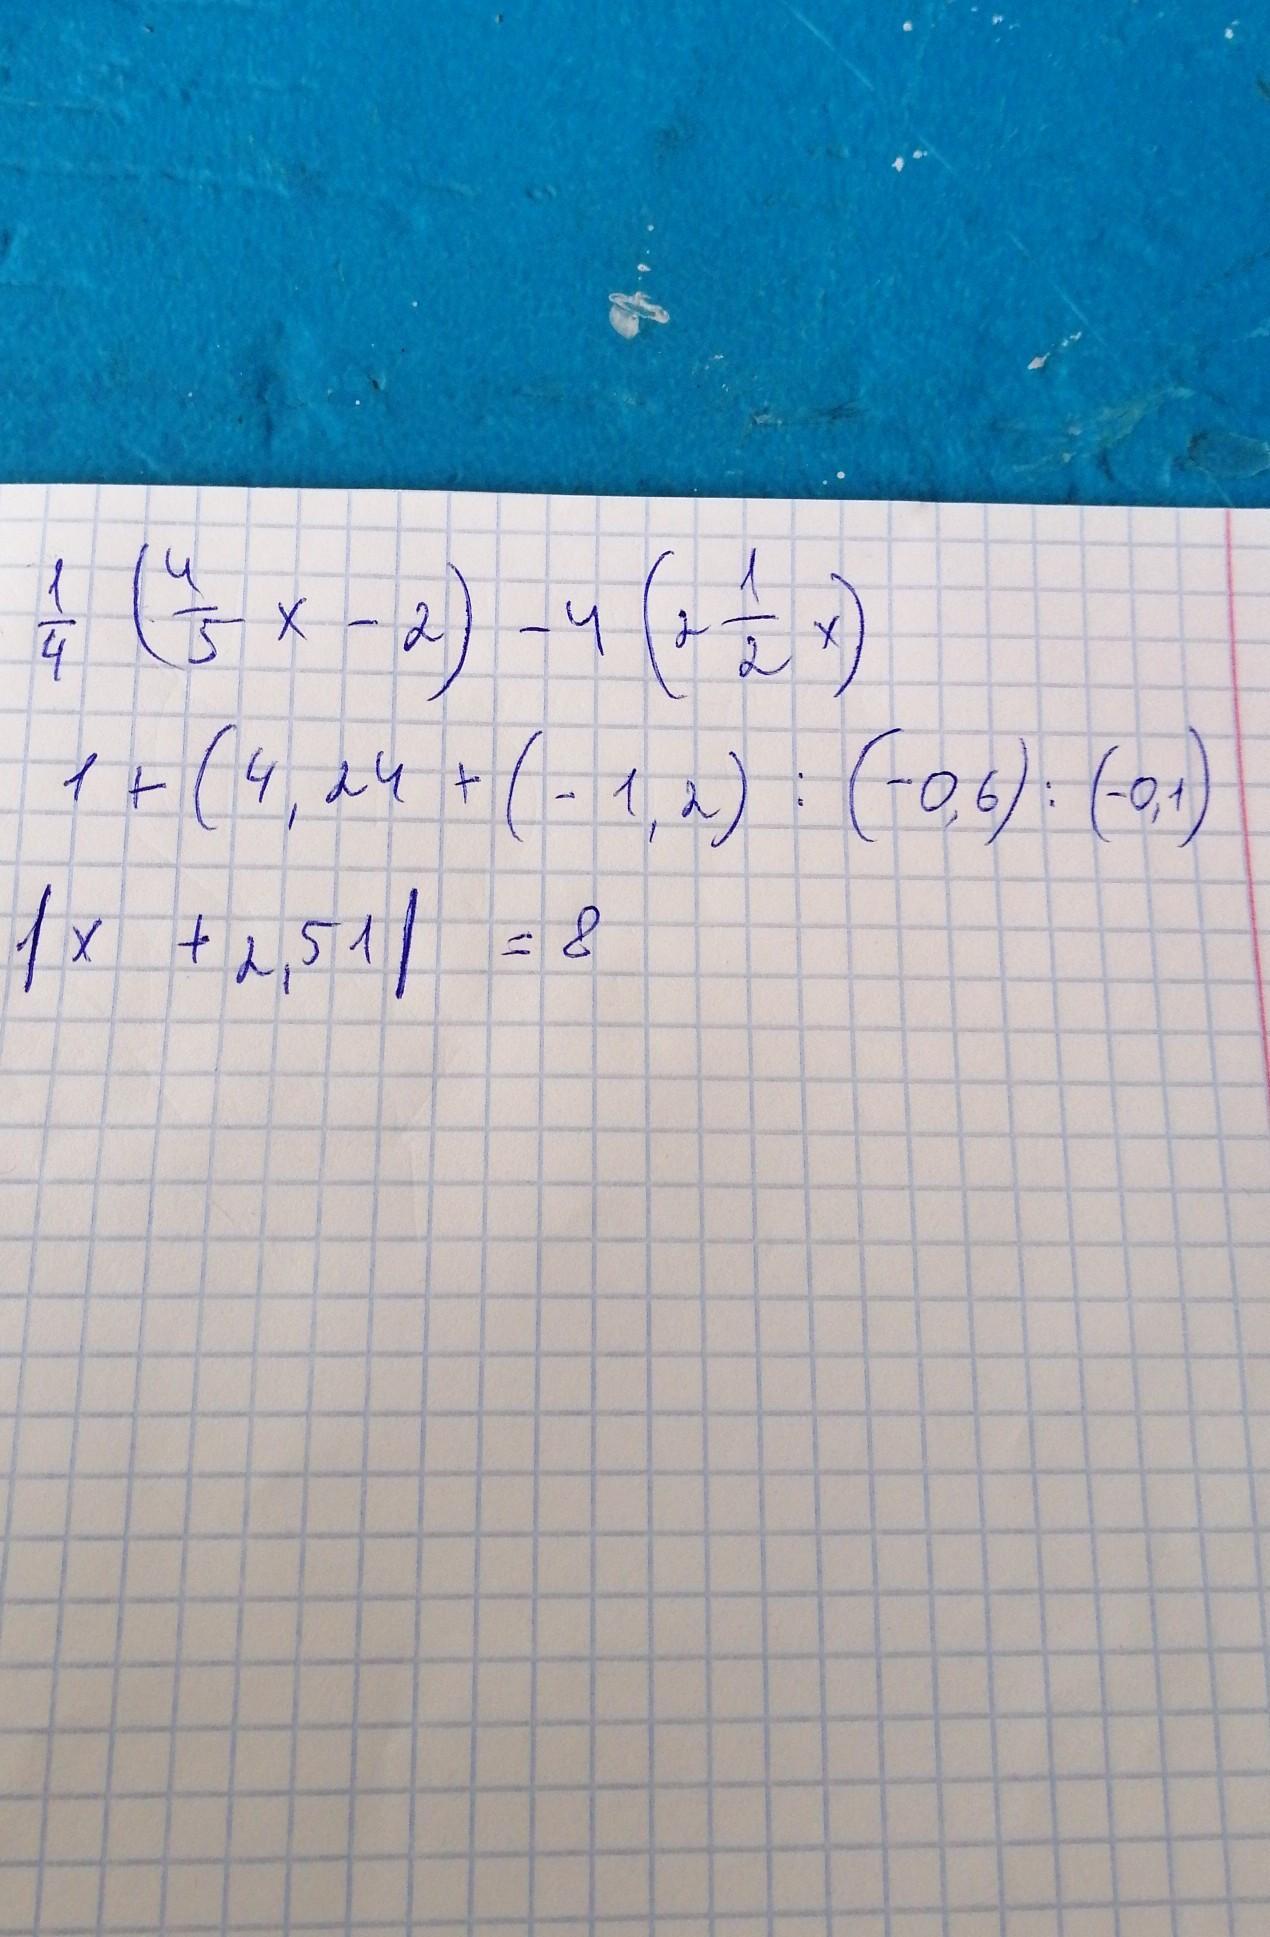 1/4 (4/5 x - 2) - 4 (2 1/2 x)
1 + (4,24 + (-1,2) : (-0,6) : (-0,1)
|x + 2,51| = 8